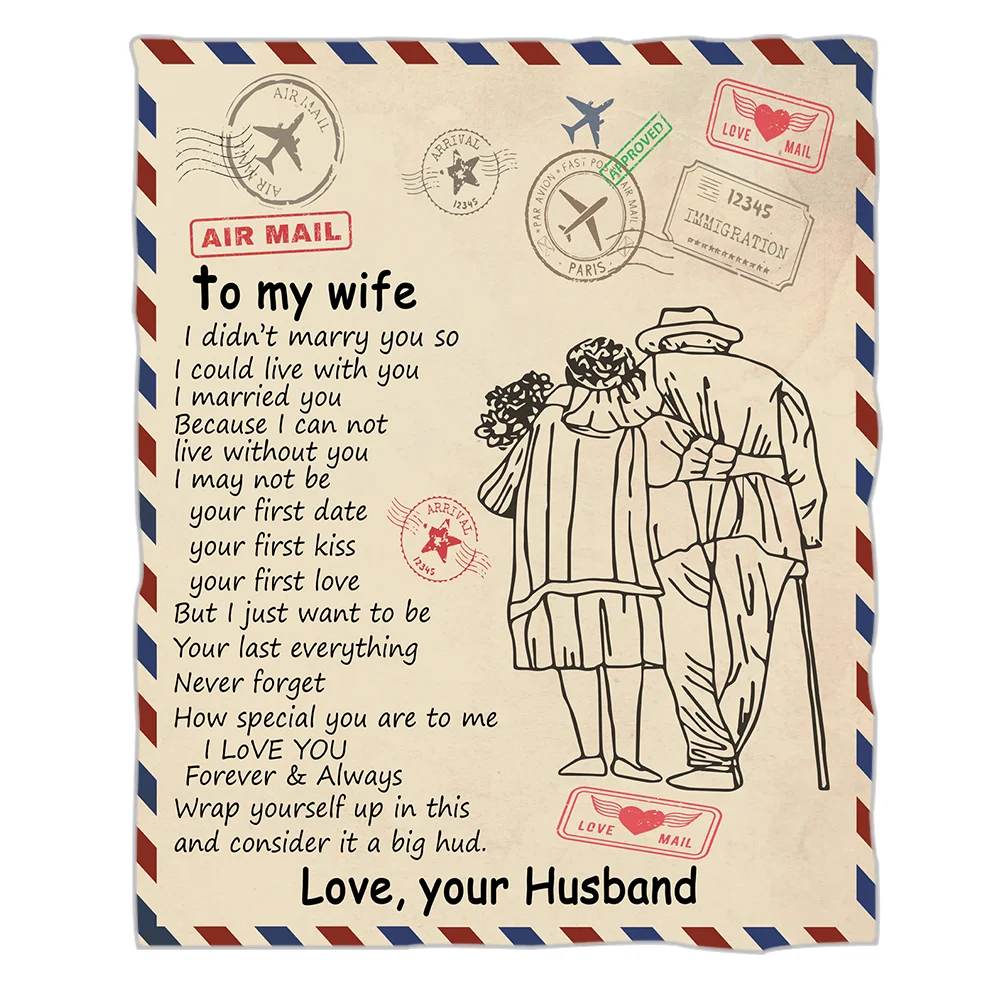 AIR MAIL
AIR MAIL
ARRIVAL
12345
PAR AVION • FAST PO AIR MAIL
PARIS
APPROVED
LOVE MAIL
12345
IMMIGRATION
AIR MAIL
to my wife
I didn't marry you so
I could live with you
I married you
Because I can not
live without you
I may not be
your first date
your first kiss
your first love
ARRIVAL
12345
But I just want to be
Your last everything
Never forget
How special you are to me
I LoVE YOU
Forever & Always
Wrap yourself up in this
and consider it a big hud.
LOVE MAIL
Love, your Husband